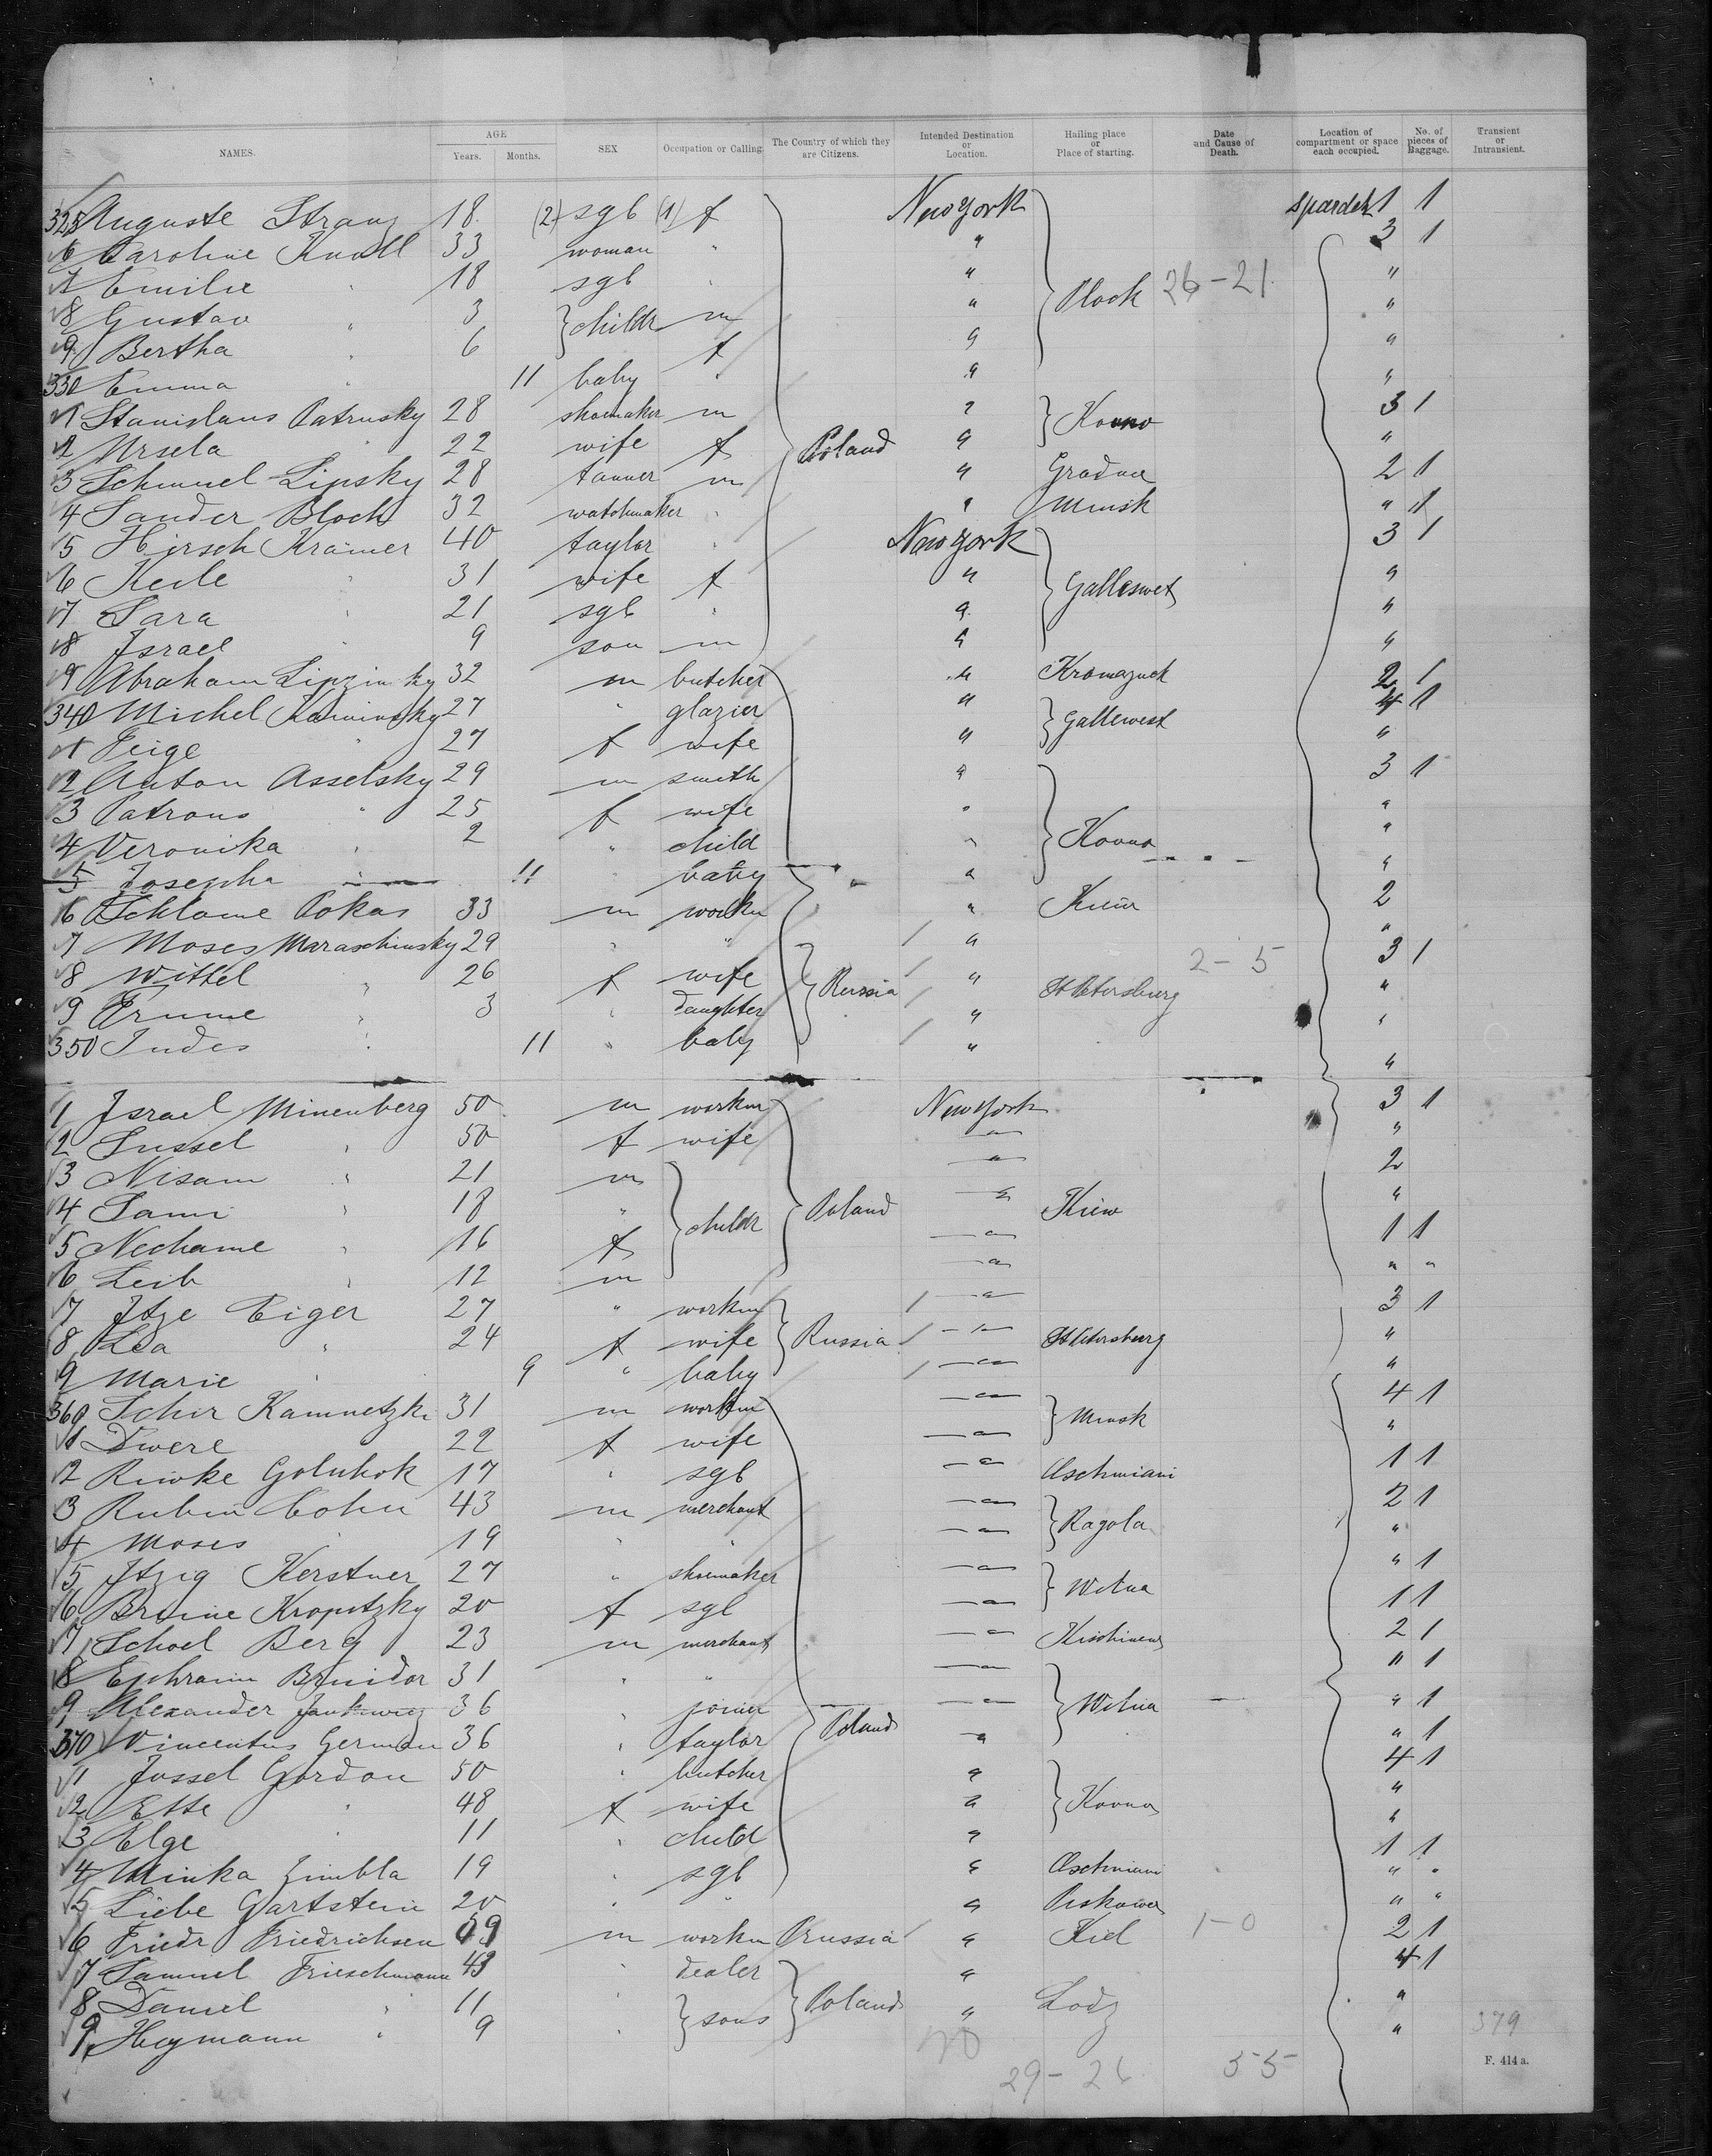 NAMES. AGE Years. Months. SEX Occupation or Calling. The Country of which they are Citizens. Intended Destination or Location. Hailing place or Place of starting. Date and Cause of Death. Location of compartment or space each occupied. No. of pieces of Baggage. Transient or Intransient.
325 Auguste Stranz 18 (2) sgl (1) f New York spardek 1 1
6 Caroline Knoll 33 woman " " 3 1
7 Emilie " 18 sgl " " "
8 Gustav " 3 childr m " Plock 26-21 "
9 Bertha " 6 f " "
330 Emma " 11 baby " " "
1 Stanislaus Patrusky 28 shoemaker m " Kowno 3 1
2 Ursela " 22 wife f Poland " "
3 Schmuel Lipsky 28 tanner m " Gradna 2 1
4 Sander Block 32 watchmaker " " Minsk " 1
5 Hirsch Krämer 40 taylor " New York 3 1
6 Keile " 31 wife f " Galleswet "
7 Sara " 21 sgl " " "
8 Israel " 9 son m " "
9 Abraham Lipzinsky 32 m butcher " Kromazuck 2 1
340 Michel Kaminsky 27 " glazier " Gallewest 4 1
1 Feige " 27 f wife " "
2 Anton Asselsky 29 m smith " 3 1
3 Patrons " 25 f wife " "
4 Veronika " 2 " child " Kovno "
5 Josepha " 11 " baby " "
6 Schlome Pokas 33 m workm " Kiew 2
7 Moses Maraschinsky 29 " " " "
8 Wittel " 26 f wife Russia " St Petersburg 2-5 3 1
9 Frume " 3 " daughter " "
350 Judes " 11 " baby " "
1 Israel Minenberg 50 m workm New York 3 1
2 Sussel " 50 f wife " "
3 Nisam " 21 m " 2
4 Sami " 18 " childr Poland " Kiew "
5 Nechame " 16 f " 1 1
6 Leib " 12 m " " "
7 Itze Eiger 27 " workm " 3 1
8 Lea " 24 f wife Russia " St Petersburg "
9 Marie " 9 " baby " "
360 Schir Kamnetzki 31 m workm " Minsk 4 1
1 Dwere 22 f wife " "
2 Riwke Golubok 17 " sgl " Oschmiani 1 1
3 Rubin Cohn 43 m merchant " Ragola 2 1
4 Moses " 19 " " " "
5 Itzig Kerstner 27 " shoemaker " Wilna " 1
6 Breine Kropitzky 20 f sgl " 1 1
7 Schoel Berg 23 m merchant " Kischinew 2 1
8 Ephraim Bruidor 31 " " " " 1
9 Alexander Jankwicz 36 " joiner " Wilna " 1
370 Vincentus German 36 " taylor Poland " " 1
1 Jossel Gordon 50 " butcher " 4 1
2 Ette " 48 f wife " Kovno "
3 Elge " 11 " child " "
4 Minka Zimbla 19 " sgl " Oschmiani 1 1
5 Liebe Gartstein 20 " " " Piskower " "
6 Friedr Friedrichsen 59 m workm Prussia " Kiel 1-0 2 1
7 Samuel Frieschmann 43 " dealer " 4 1
8 Daniel " 11 " sons Poland " Lodz "
9 Heymann " 9 " " 379
20
29-26 55 F. 414 a.